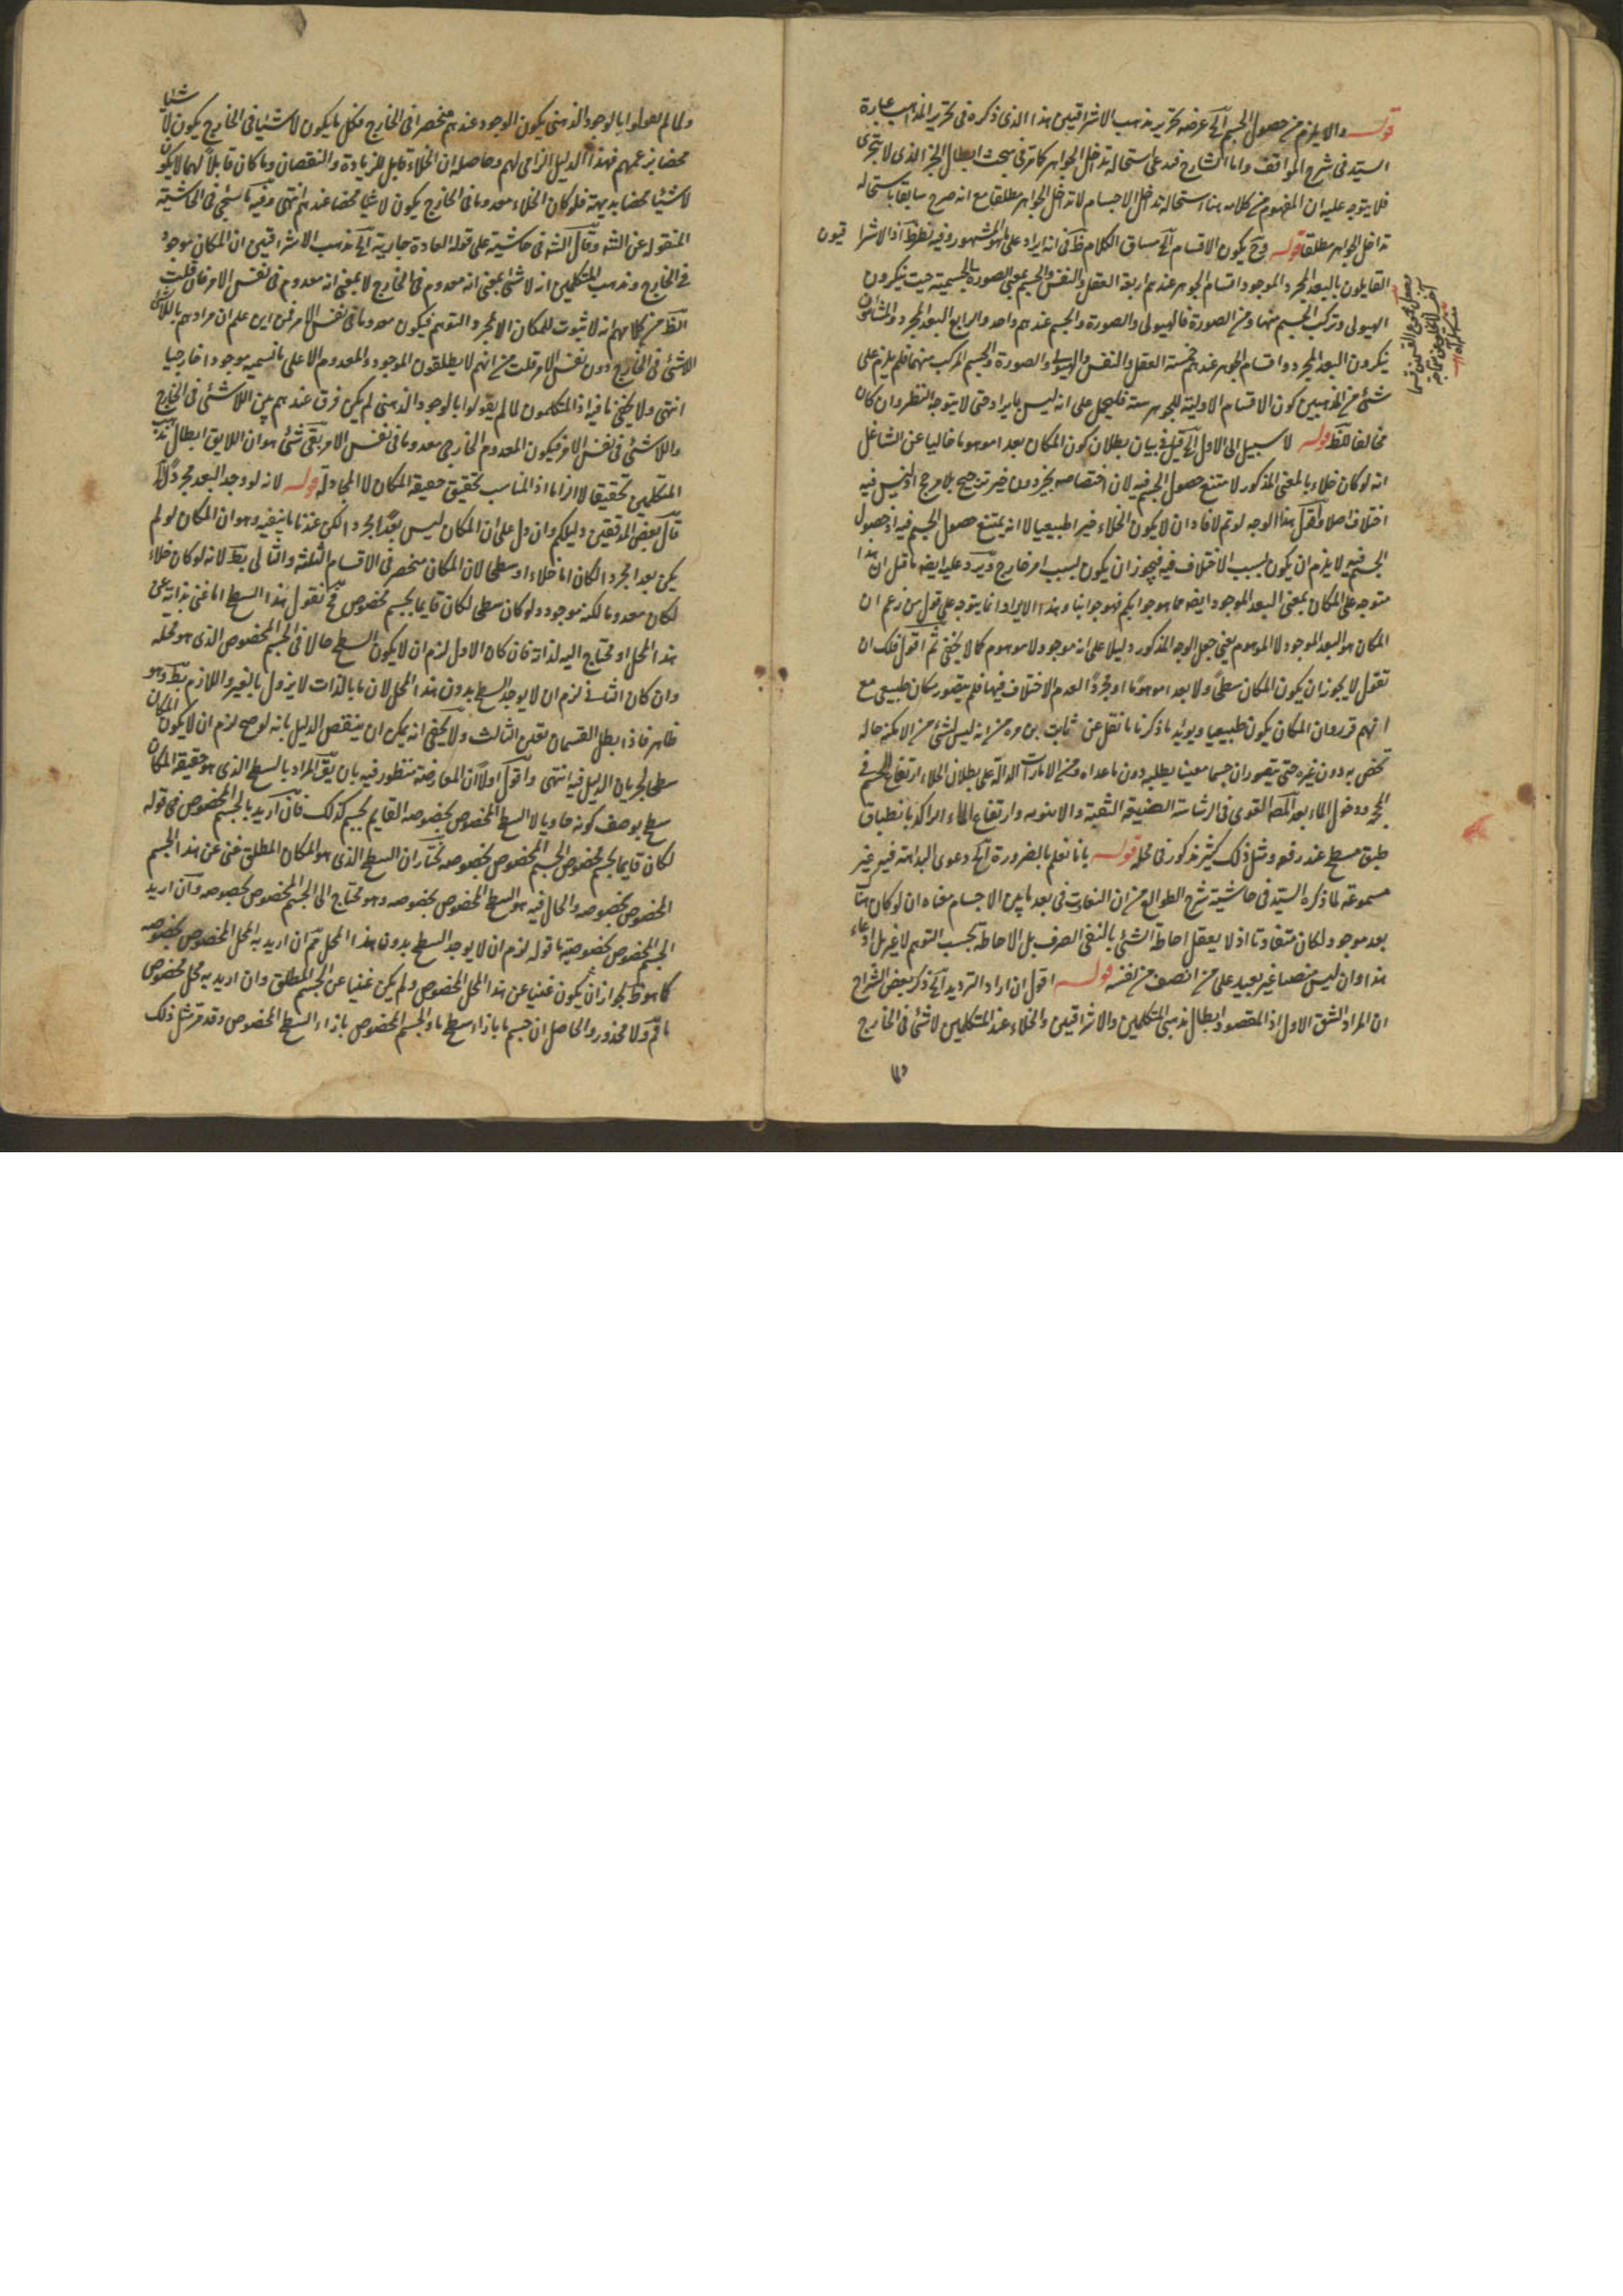 قوله والا يلزم من حصول الجسم الخ عرضه تحرير مذهب الاشراقيين هذا الذى ذكره فى تحرير المذاهب عبارة
السيد فى شرح المواقف واما الشارح فيدعى استحالة تداخل الجواهر كما مر فى مبحث ابطال الجزء الذى لا يتجزى
فلا يتوجه عليه ان المفهوم من كلامه هنا استحالة تداخل الاجسام لا تداخل الجواهر مطلقا مع انه صرح سابقا باستحالة
تداخل الجواهر مطلقا قوله وح يكون الاقسام الخ مساق الكلام ظ فى انه ايراد على ما هو المشهور وفيه نظر ظ اذ الاشرا قيون
القايلون بالبعد المجرد الموجود اقسام الجوهر عندهم اربعة العقل والنفس والجسم بمعنى الصورة الجسمية حيث ينكرون
الهيولى وتركب الجسم منها ومن الصورة فالهيولى والصورة والجسم عندهم واحد والرابع البعد المجرد والمشاؤن
ينكرون البعد المجرد واقسام الجوهر عندهم خمسة العقل والنفس والهيولى والصورة والجسم المركب منهما فلم يلزم على
شئ من المذهبين كون الاقسام الاولية للجوهر ستة فليحمل على انه ليس بايراد حتى لا يتوجه النظر وان كان
مخالفا للظ قوله لا سبيل الى الاول الخ قيل فى بيان بطلان كون المكان بعدا موهوما خاليا عن الشاغل
انه لو كان خلاء بالمعنى المذكور لامتنع حصول الجسم فيه لان اختصاصه بحيز دون حيز ترجيح بلا مرجح اذ ليس فيه
اختلاف اصلا ولعل هذا الوجه لو تم لافاد ان لا يكون الخلاء حيزا طبيعيا لا انه يمتنع حصول الجسم فيه اذ حصول
الجسم فيه لا يلزم ان يكون بسبب الاختلاف فيه فيجوز ان يكون بسبب امر خارج ويرد عليه ايضا ما قيل ان هذا
متوجه على المكان بمعنى البعد الموجود ايضا فما هو جوابكم فهو جوابنا وهذا الايراد انما يتوجه على قول من زعم ان
المكان هو البعد الموجود لا الموهوم يعنى جعل الوجه المذكور دليلا على انه موجود لا موهوم كما لا يخفى ثم اقول فلك ان
تقول لا يجوز ان يكون المكان سطحا ولا بعدا موهوما او مجردا لعدم الاختلاف فيها فلم يتصور مكان طبيعى مع
انهم قرروا ان المكان يكون طبيعيا ويؤيد ما ذكرنا ما نقل عن ثابت بن قره من انه ليس لشئ من الامكنة حاله
تخص به دون غيره حتى يتصور ان جسما معينا يطلبه دون ما عداه ومن الامارات الدالة على بطلان الخلاء ارتفاع اللحم فى
المحجمة ودخول الماء بعد المص القوى فى الرشاشة الضيقة الثقبة والانبوبه وارتفاع الماء الراكد بانطباق
طبق مسطح عند رفعه ومثل ذلك كثير مذكور فى محله قوله بانا نعلم بالضرورة الخ دعوى البداهة فيه غير
مسموعة لما ذكره السيد فى حاشية شرح الطوالع من ان التفاوت فى بعد ما بين الاجسام معناه ان لو كان هنا
بعد موجود لكان متفاوتا اذ لا يعقل احاطة الشئ بالنفى الصرف بل الاحاطة بحسب التوهم لا غير بل ادعاء
هذا وان ليس منصفا غير بعيد على من انصف من نفسه قوله اقول ان اراد الترديد الخ ذكر بعض الشراح
ان المراد الشق الاول اذ المقصود ابطال مذهبى المتكلمين والاشراقيين والخلاء عند المتكلمين لا شئ فى الخارج
ولما لم يقولوا بالوجود الذهنى يكون الوجود عندهم منحصرا فى الخارج فكل ما يكون لا شئيا فى الخارج يكون لا شيئا
محضا بزعمهم فهذا الدليل الزامى لهم وحاصله ان الخلاء قابل للزيادة والنقصان وما كان قابلا لهما لا يكون
لا شيئا محضا بديهة فلو كان الخلاء معدوما فى الخارج يكون لا شيئا محضا عندهم انتهى وفيه ما سيجئ فى الحاشية
المنقوله عن الشه وقال الشه فى حاشية على قوله العادة جارية الخ مذهب الاشراقيين ان المكان موجود
فى الخارج ومذهب المتكلمين انه لا شئ بمعنى انه معدوم فى الخارج لا بمعنى انه معدوم فى نفس الامر فان قلت
الظ من كلامهم انه لا ثبوت للمكان الا بمجرد التوهم فيكون معدوما فى نفس الامر فمن اين علم ان مرادهم باللاشئ
اللاشئ فى الخارج دون نفس الامر قلت من انهم لا يطلقون الموجود والمعدوم الا على ما نسميه موجودا خارجيا
انتهى ولا يخفى ما فيه اذ المتكلمون لما لم يقولوا بالوجود الذهنى لم يكن فرق عندهم بين اللاشئ فى الخارج
واللاشئ فى نفس الامر فيكون المعدوم الخارجى معدوما فى نفس الامر بقى شئ هو ان اللايق ابطال مذهب
المتكلمين تحقيقا لا الزاما اذ المناسب تحقيق حقيقة المكان لا المجادلة قوله لانه لو وجد البعد مجردا الخ
قال بعض المدققين دليلكم وان دل على ان المكان ليس بعدا مجردا لكن عندنا ما ينفيه وهو ان المكان لو لم
يكن بعدا مجردا لكان اما خلاء او سطحا لان المكان منحصر فى الاقسام الثلثة والتالى بط لانه لو كان خلاء
لكان معدوما لكنه موجود ولو كان سطحا لكان قايما بجسم مخصوص فح نقول هذا السطح اما غنى بذاته عن
هذا المحل او محتاج اليه لذاته فان كان الاول لزم ان لا يكون السطح حالا فى الجسم المخصوص الذى هو محله
وان كان الثانى لزم ان لا يوجد السطح بدون هذا المحل لان ما بالذات لا يزول بالغير واللازم بط وهو
ظاهر فاذا بطل القسمان تعين الثالث ولا يخفى انه يمكن ان ينقض الدليل بانه لو صح لزم ان لا يكون المكان
سطحا لجريان الدليل فيه انتهى واقول اولا ان المعارضة منظور فيه بان يق المراد بالسطح الذى هو حقيقة المكان
سطح بوصف كونه حاويا لا السطح المخصوص بخصوصه القايم بجسم كذلك فان اريد بالجسم المخصوص فى قوله
لكان قايما بجسم مخصوص الجسم المخصوص بخصوصه نختار ان السطح الذى هو المكان المطلق غنى عن هذا الجسم
المخصوص بخصوصه والحال فيه هو السطح المخصوص بخصوصه وهو محتاج الى الجسم المخصوص بخصوصه وان اريد
الجسم المخصوص بخصوصية ما قوله لزم ان لا يوجد السطح بدون هذا المحل قم ان اريد به المحل المخصوص بخصوصه
كما هو ظ لجواز ان يكون غنيا عن هذا المحل المخصوص ولم يكن غنيا عن الجسم المطلق وان اريد به محل مخصوص
ما قم ولا محذور والحاصل ان جسم ما بازاء سطح ما والجسم المخصوص بازاء السطح المخصوص وقد مر مثل ذلك